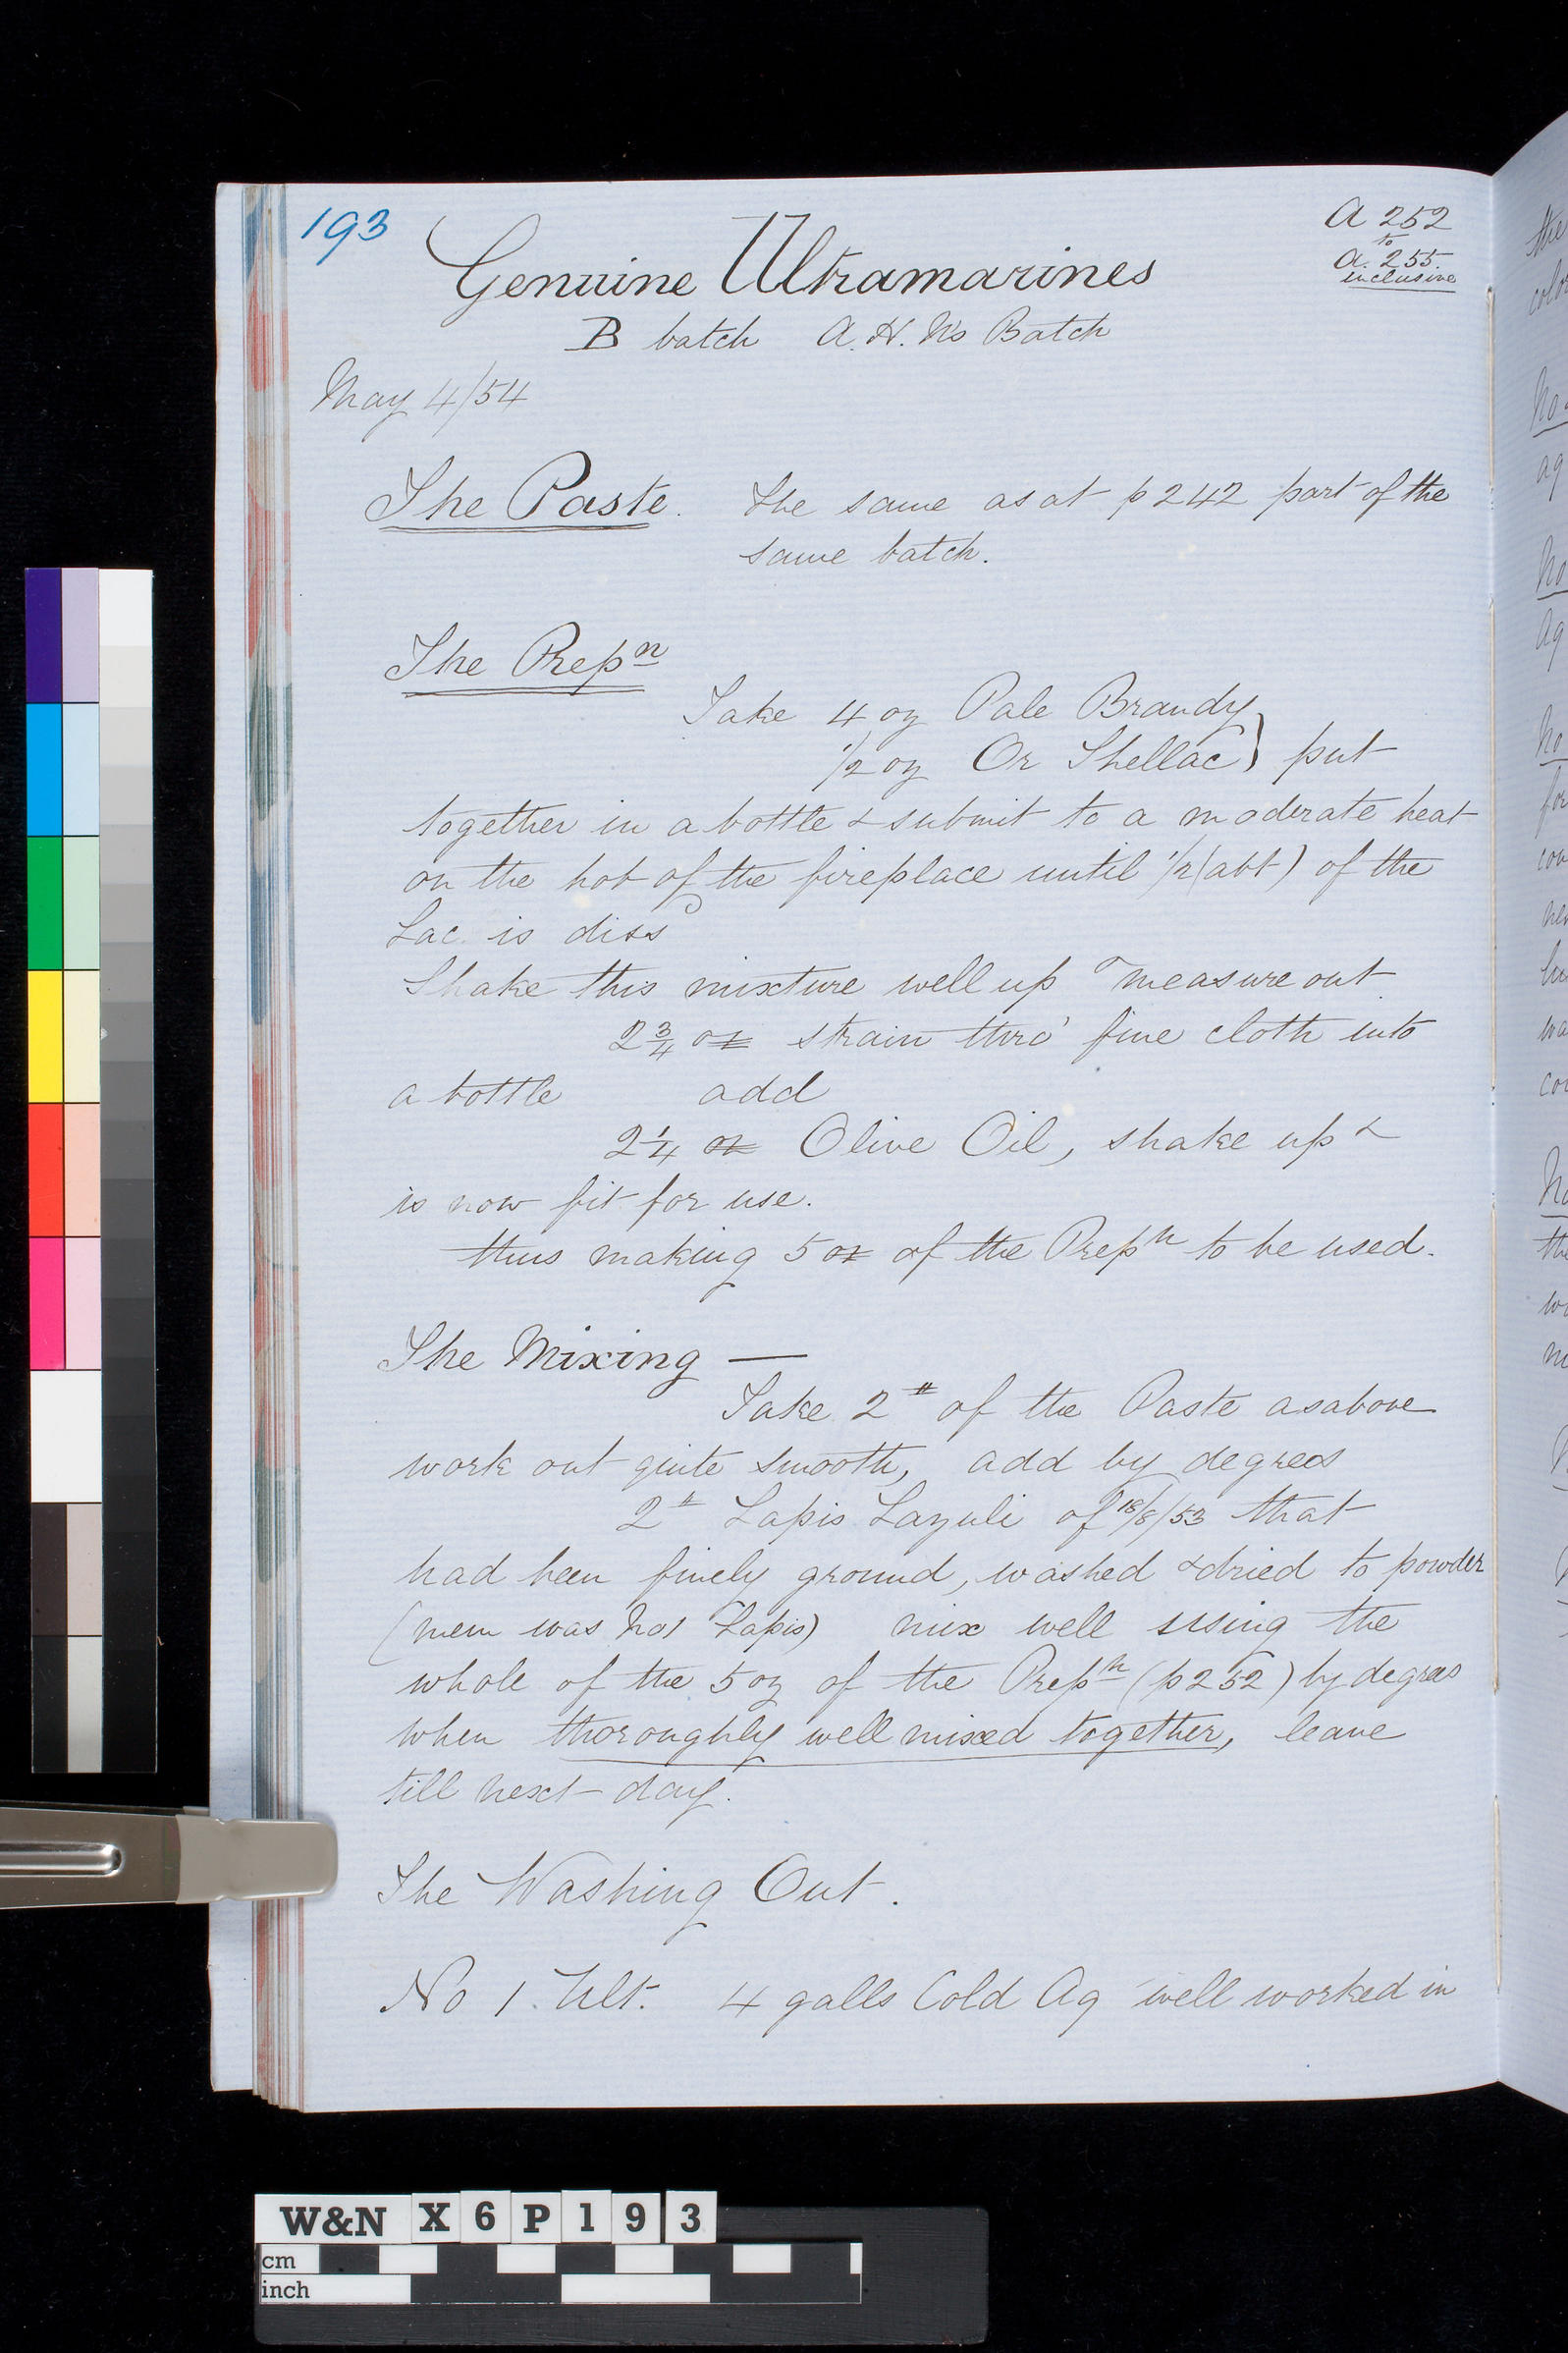 193
A 252
to
A. 255
inclusive
Genuine Ultramarines
B batch A. H. N's Batch
May 4/54
The Paste. The same as at p 242 part of the
same batch.
The Prepn
Take 4 oz Pale Brandy
1/2 oz Or Shellac } put
together in a bottle & submit to a moderate heat
on the hob of the fireplace until 1/2 (abt) of the
Lac is dissd
Shake this mixture well up & measure out
2 3/4 oz strain thro' fine cloth into
a bottle add
2 1/4 oz Olive Oil, shake up &
is now fit for use.
thus making 5 oz of the Prepn to be used.
The Mixing —
Take 2# of the Paste as above
work out quite smooth, add by degrees
2# Lapis Lazuli of 18/8/53 that
had been finely ground, washed & dried to powder
(mem was No 1 Lapis) mix well using the
whole of the 5 oz of the Prepn (p 252) by degrees
when thoroughly well mixed together, leave
till next day.
The Washing Out.
No 1. Ult. 4 galls Cold Aq well worked in
W&N X 6 P 1 9 3
cm
inch